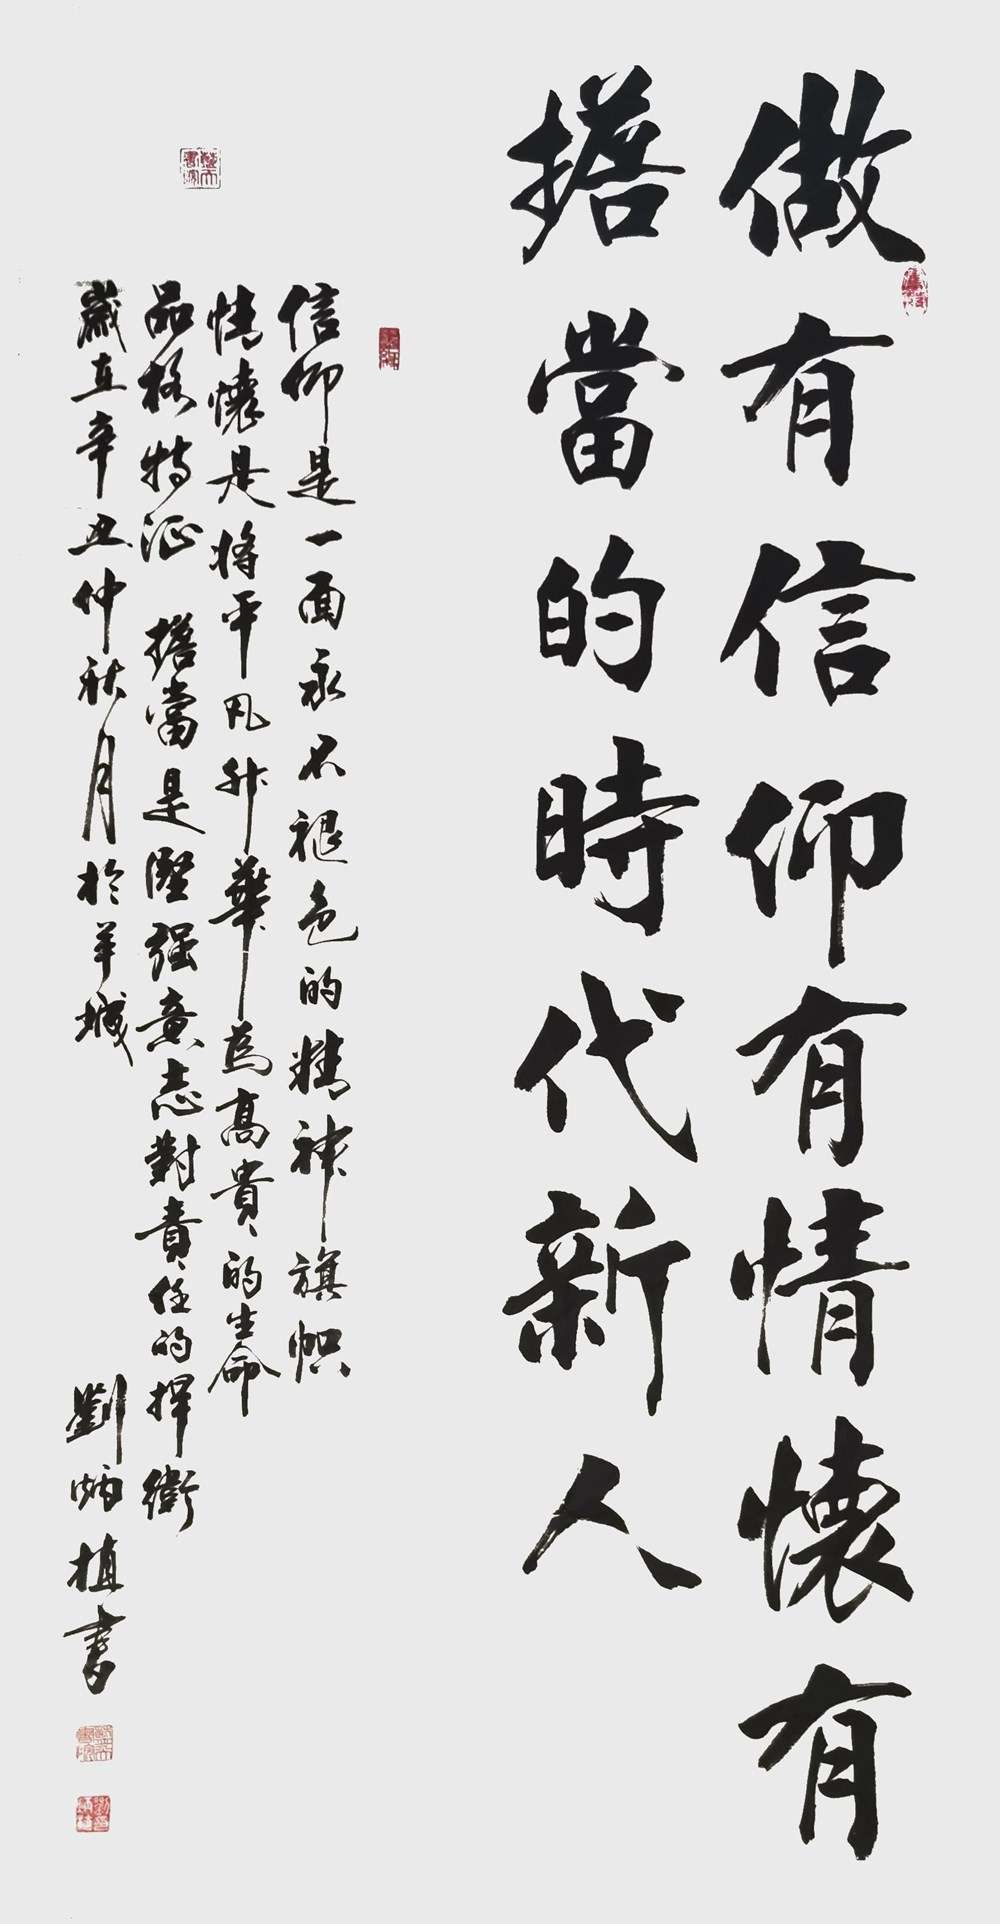 做有信仰有情懷有
擔當的時代新人
信仰是一面永不褪色的精神旗帜
情懷是將平凡升華為高貴的生命
品格特征 擔當是堅强意志對責任的捍衛
歲在辛丑仲秋月於羊城 劉炳植書